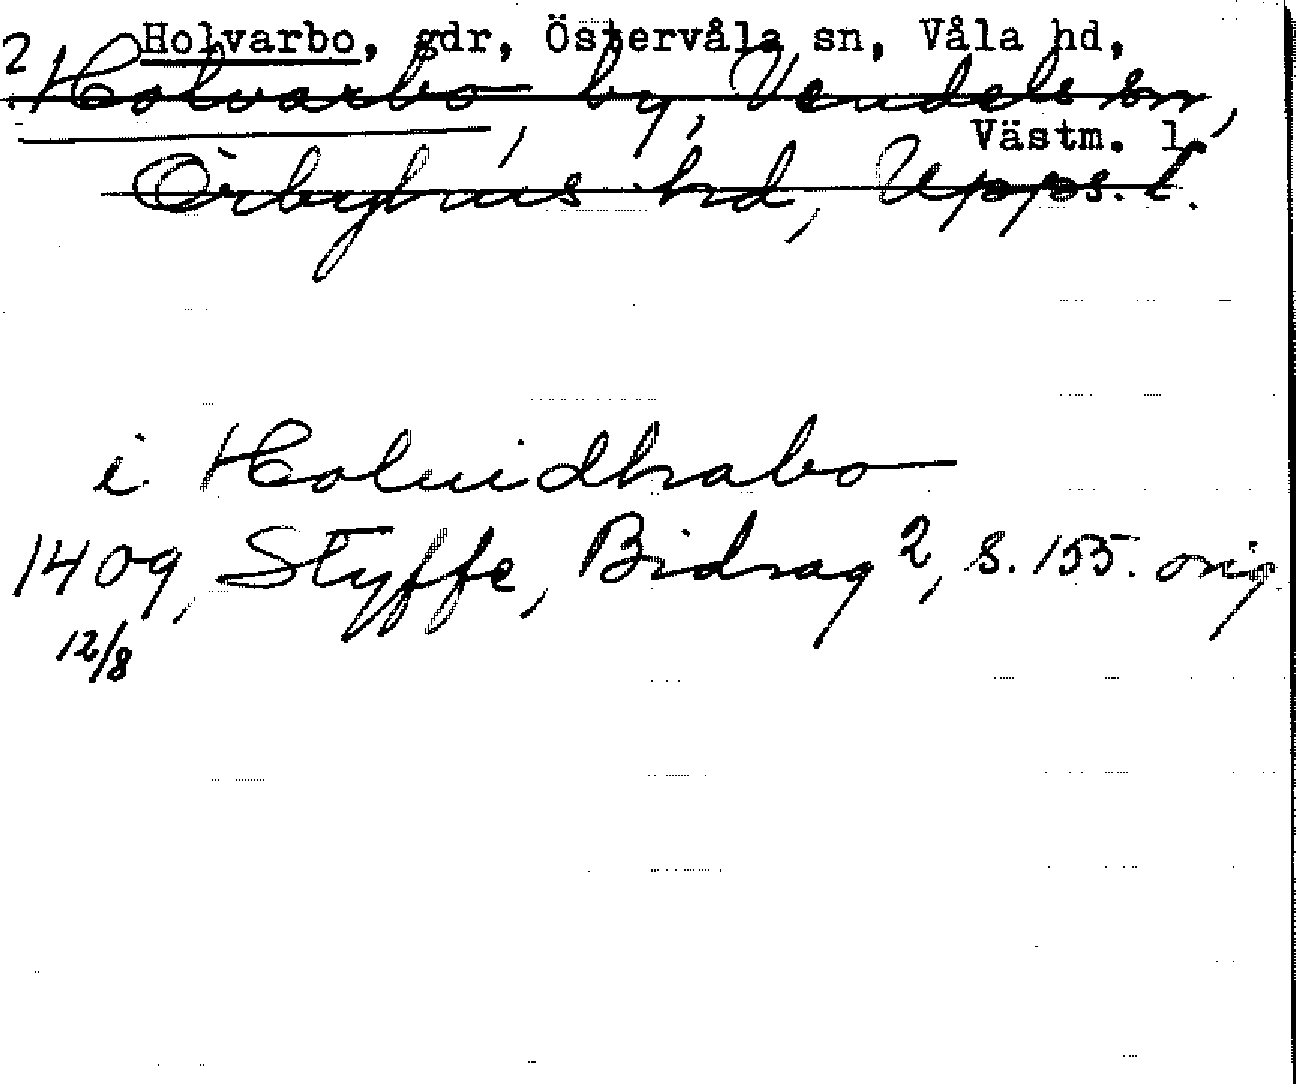 Holvarbo, gdr, Östervåla sn, Våla hd,
2 Holvarbo, by, Vendels sn,
Västm. l.
Örbyhus hd, Upps. l.
i Holuidhabo
1409, Styffe, Bidrag 2, s. 155. orig.
12/8